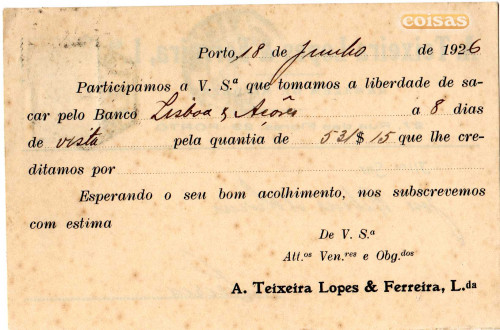 coisas
Porto, 18 de Junho de 1926
Participamos a V. S.ª que tomamos a liberdade de sa-
car pelo Banco Lisboa & Açôres a 8 dias
de vista pela quantia de 521$15 que lhe cre-
ditamos por
Esperando o seu bom acolhimento, nos subscrevemos
com estima
De V. S.ª
Att.os Ven.res e Obg.dos
A. Teixeira Lopes & Ferreira, L.da